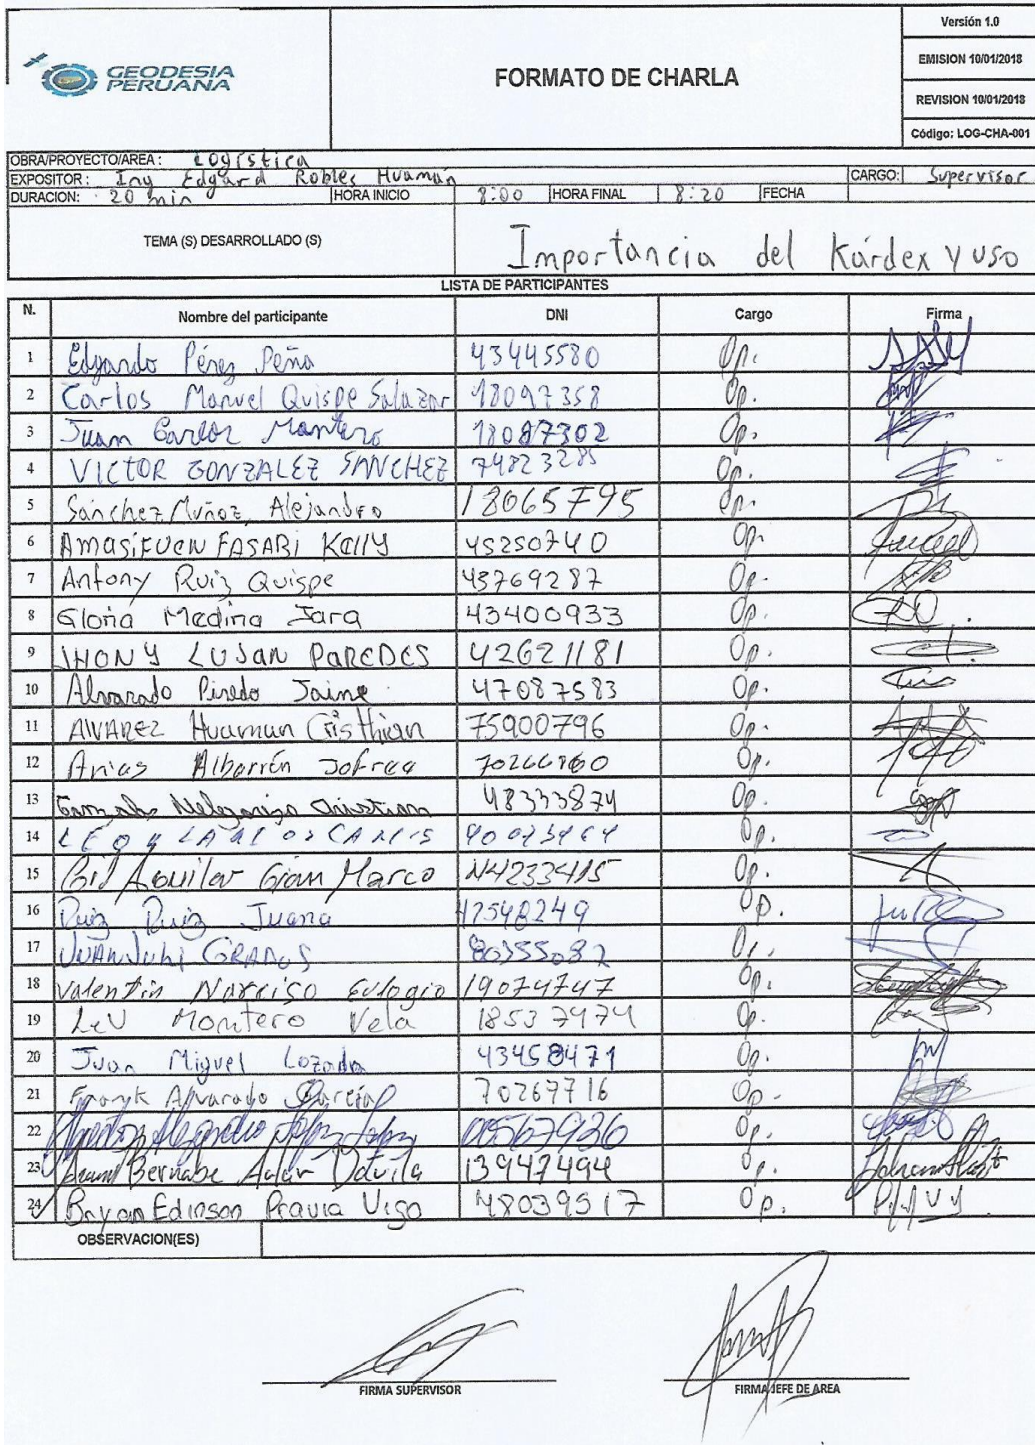 GEODESIA
PERUANA
FORMATO DE CHARLA
Versión 1.0
EMISION 10/01/2018
REVISION 10/01/2018
Código: LOG-CHA-001
OBRA/PROYECTO/AREA: Logística
EXPOSITOR: Ing Edgard Robles Huamán CARGO: Supervisor
DURACION: 20 min HORA INICIO 8:00 HORA FINAL 8:20 FECHA
TEMA (S) DESARROLLADO (S) Importancia del Kárdex y uso
LISTA DE PARTICIPANTES
N. Nombre del participante DNI Cargo Firma
1 Edgardo Pérez Peña 43445580 Op.
2 Carlos Manuel Quispe Salazar 18097358 Op.
3 Juan Carlos Mantero 18087302 Op.
4 VICTOR GONZALEZ SANCHEZ 74823285 Op.
5 Sánchez Muñoz, Alejandro 18065795 Op.
6 AMASIFUEN FASABI KELLY 45250740 Op.
7 Antony Ruiz Quispe 43769287 Op.
8 Gloria Medina Jara 43400933 Op.
9 JHONY LUJAN PAREDES 42621181 Op.
10 Alvarado Pinedo Jaime 47087583 Op.
11 ALVAREZ Huaman Cristhian 75900796 Op.
12 Arias Albarrén Jofree Op.
13 48333874 Op.
14 Op.
15 Gil Aguilar Gian Marco Op.
16 Ruiz Ruiz Juana 47548249 Op.
17 Op.
18 Valentín Narciso Eulogio 19074747 Op.
19 Montero Vela 18537974 Op.
20 Juan Miguel Lozada 43458471 Op.
21 Frank Alvarado García 70267716 Op.
22 00567936 Op.
23 Bernabe 13947494 Op.
24 Bryan Edinson Pravia Vigo 48039517 Op.
OBSERVACION(ES)
FIRMA SUPERVISOR FIRMA JEFE DE AREA